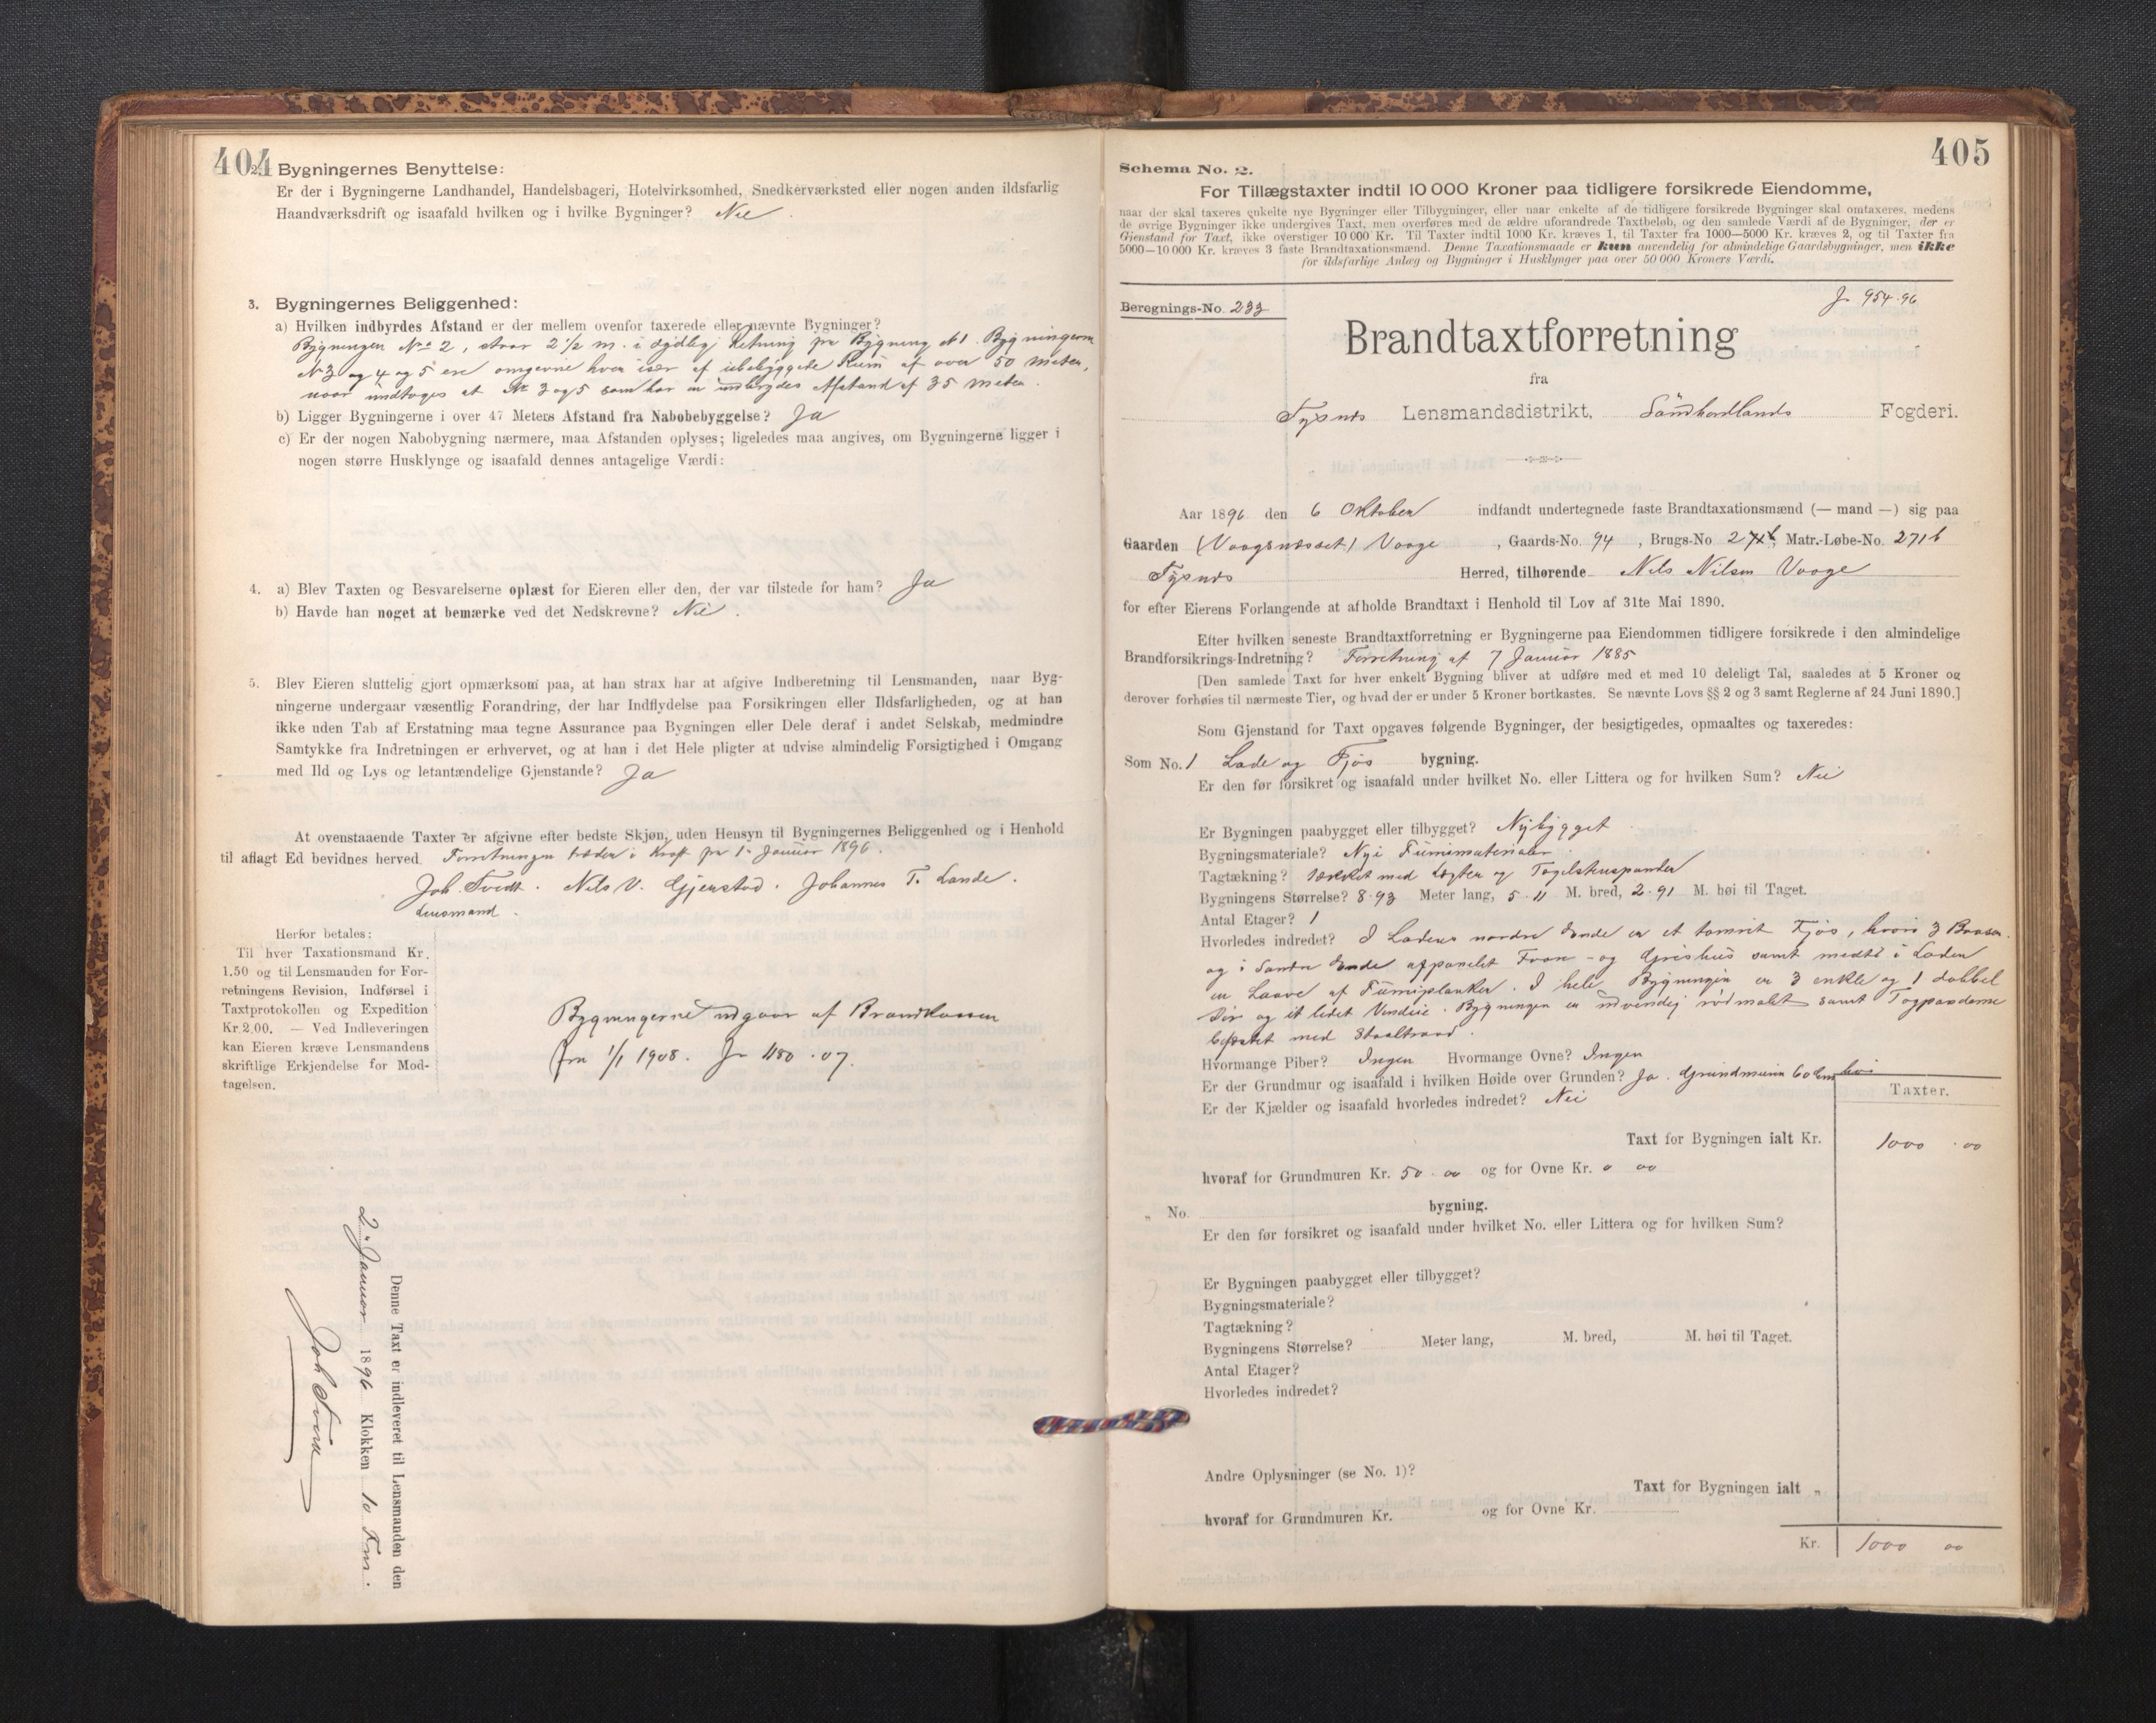 404
2. Bygningernes Benyttelse:
Er der i Bygningerne Landhandel, Handelsbageri, Hotelvirksomhed, Snedkerværksted eller nogen anden ildsfarlig
Haandværksdrift og isaafald hvilken og i hvilke Bygninger? Nei.
3. Bygningernes Beliggenhed:
a) Hvilken indbyrdes Afstand er der mellem ovenfor taxerede eller nævnte Bygninger?
Bygningen No 2, staar 2 1/2 m. i sydlig Retning fra Bygning N 1. Bygningerne
N 3 og 4 og 5 ere omgevne hver især af ubebyggede Rum af over 50 meter,
naar undtages at No 3 og 5 som har en indbyrdes Afstand af 35 meter.
b) Ligger Bygningerne i over 47 Meters Afstand fra Nabobebyggelse? Ja
c) Er der nogen Nabobygning nærmere, maa Afstanden oplyses; ligeledes maa angives, om Bygningerne ligger i
nogen større Husklynge og isaafald dennes antagelige Værdi:
4. a) Blev Taxten og Besvarelserne oplæst for Eieren eller den, der var tilstede for ham? Ja
b) Havde han noget at bemærke ved det Nedskrevne? Nei.
5. Blev Eieren sluttelig gjort opmærksom paa, at han strax har at afgive Indberetning til Lensmanden, naar Byg-
ningerne undergaar væsentlig Forandring, der har Indflydelse paa Forsikringen eller Ildsfarligheden, og at han
ikke uden Tab af Erstatning maa tegne Assurance paa Bygningen eller Dele deraf i andet Selskab, medmindre
Samtykke fra Indretningen er erhvervet, og at han i det Hele pligter at udvise almindelig Forsigtighed i Omgang
med Ild og Lys og letantændelige Gjenstande? Ja
At ovenstaaende Taxter er afgivne efter bedste Skjøn, uden Hensyn til Bygningernes Beliggenhed og i Henhold
til aflagt Ed bevidnes herved. Forretningen træder i Kraft fra 1. Januar 1896.
Joh. Tvedt. Nels V. Gjerstad. Johannes T. Lande.
Lensmand.
Herfor betales:
Til hver Taxationsmand Kr.
1.50 og til Lensmanden for For-
retningens Revision, Indførsel i
Taxtprotokollen og Expedition
Kr. 2.00. — Ved Indleveringen
kan Eieren kræve Lensmandens
skriftlige Erkjendelse for Mod-
tagelsen.
Bygningerne udgaar af Brandkassen
fra 1/1 1908. Jr 1180.07.
Denne Taxt er indleveret til Lensmanden den
2. Januar 1896 Klokken 10 Fm.
Joh Tvedt
405
Schema No. 2.
For Tillægstaxter indtil 10 000 Kroner paa tidligere forsikrede Eiendomme,
naar der skal taxeres enkelte nye Bygninger eller Tilbygninger, eller naar enkelte af de tidligere forsikrede Bygninger skal omtaxeres, medens
de øvrige Bygninger ikke undergives Taxt, men overføres med de ældre uforandrede Taxtbeløb, og den samlede Værdi af de Bygninger, der er
Gjenstand for Taxt, ikke overstiger 10 000 Kr. Til Taxter indtil 1000 Kr. kræves 1, til Taxter fra 1000—5000 Kr. kræves 2, og til Taxter fra
5000—10 000 Kr. kræves 3 faste Brandtaxationsmænd. Denne Taxationsmaade er kun anvendelig for almindelige Gaardsbygninger, men ikke
for ildsfarlige Anlæg og Bygninger i Husklynger paa over 50 000 Kroners Værdi.
Beregnings-No. 233
Jr 954.96
Brandtaxtforretning
fra
Tysnes Lensmandsdistrikt, Søndhordlands Fogderi.
Aar 1896 den 6 Oktober indfandt undertegnede faste Brandtaxationsmænd (— mand —) sig paa
Gaarden (Vaagsnæset) Vaage, Gaards-No. 94, Brugs-No. 2, Matr.-Løbe-No. 271b
Tysnes Herred, tilhørende Nels Nilsen Vaage
for efter Eierens Forlangende at afholde Brandtaxt i Henhold til Lov af 31te Mai 1890.
Efter hvilken seneste Brandtaxtforretning er Bygningerne paa Eiendommen tidligere forsikrede i den almindelige
Brandforsikrings-Indretning? Forretning af 7 Januar 1885
[Den samlede Taxt for hver enkelt Bygning bliver at udføre med et med 10 deleligt Tal, saaledes at 5 Kroner og
derover forhøies til nærmeste Tier, og hvad der er under 5 Kroner bortkastes. Se nævnte Lovs §§ 2 og 3 samt Reglerne af 24 Juni 1890.]
Som Gjenstand for Taxt opgaves følgende Bygninger, der besigtigedes, opmaaltes og taxeredes:
Som No. 1 Lade og Fjøs bygning.
Er den før forsikret og isaafald under hvilket No. eller Littera og for hvilken Sum? Nei
Er Bygningen paabygget eller tilbygget? Nybygget
Bygningsmateriale? Nyt Furumateriale
Tagtækning? Tækket med Lægter og Teglstenspander
Bygningens Størrelse? 8.93 Meter lang, 5.11 M. bred, 2.91 M. høi til Taget.
Antal Etager? 1
Hvorledes indredet? I Ladens nordre Ende er et tømret Fjøs, hvori 3 Baase
og i Søndre Ende afpanelet Faare- og Grishus samt midt i Laden
en Laave af Furuplanker. I hele Bygningen er 3 enkle og 1 dobbel
Dør og et ledet Vindue. Bygningen er udvendig rødmalet samt Tagpanderne
befæstet med Staaltraad.
Hvormange Piber? Ingen Hvormange Ovne? Ingen
Er der Grundmur og isaafald i hvilken Høide over Grunden? Ja. Grundmuren 60 cm høi
Er der Kjælder og isaafald hvorledes indredet? Nei
Taxter.
Taxt for Bygningen ialt Kr. 1000.00
hvoraf for Grundmuren Kr. 50.00 og for Ovne Kr. 0 00
„ No. bygning.
Er den før forsikret og isaafald under hvilket No. eller Littera og for hvilken Sum?
Er Bygningen paabygget eller tilbygget?
Bygningsmateriale?
Tagtækning?
Bygningens Størrelse? Meter lang, M. bred, M. høi til Taget.
Antal Etager?
Hvorledes indredet?
Andre Oplysninger (se No. 1)?
Taxt for Bygningen ialt „
hvoraf for Grundmuren Kr. og for Ovne Kr.
Kr. 1000 00